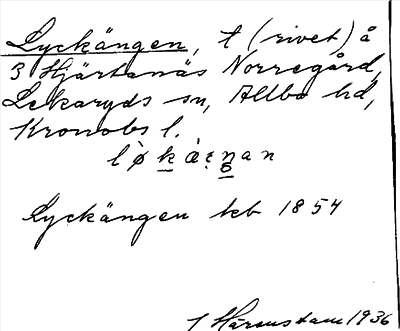 Lyckängen, t (rivet) å
3 Hjärtanäs Norregård,
Lekaryds sn, Allbo hd,
Kronobs l.
Lyckängen kb 1854
1936